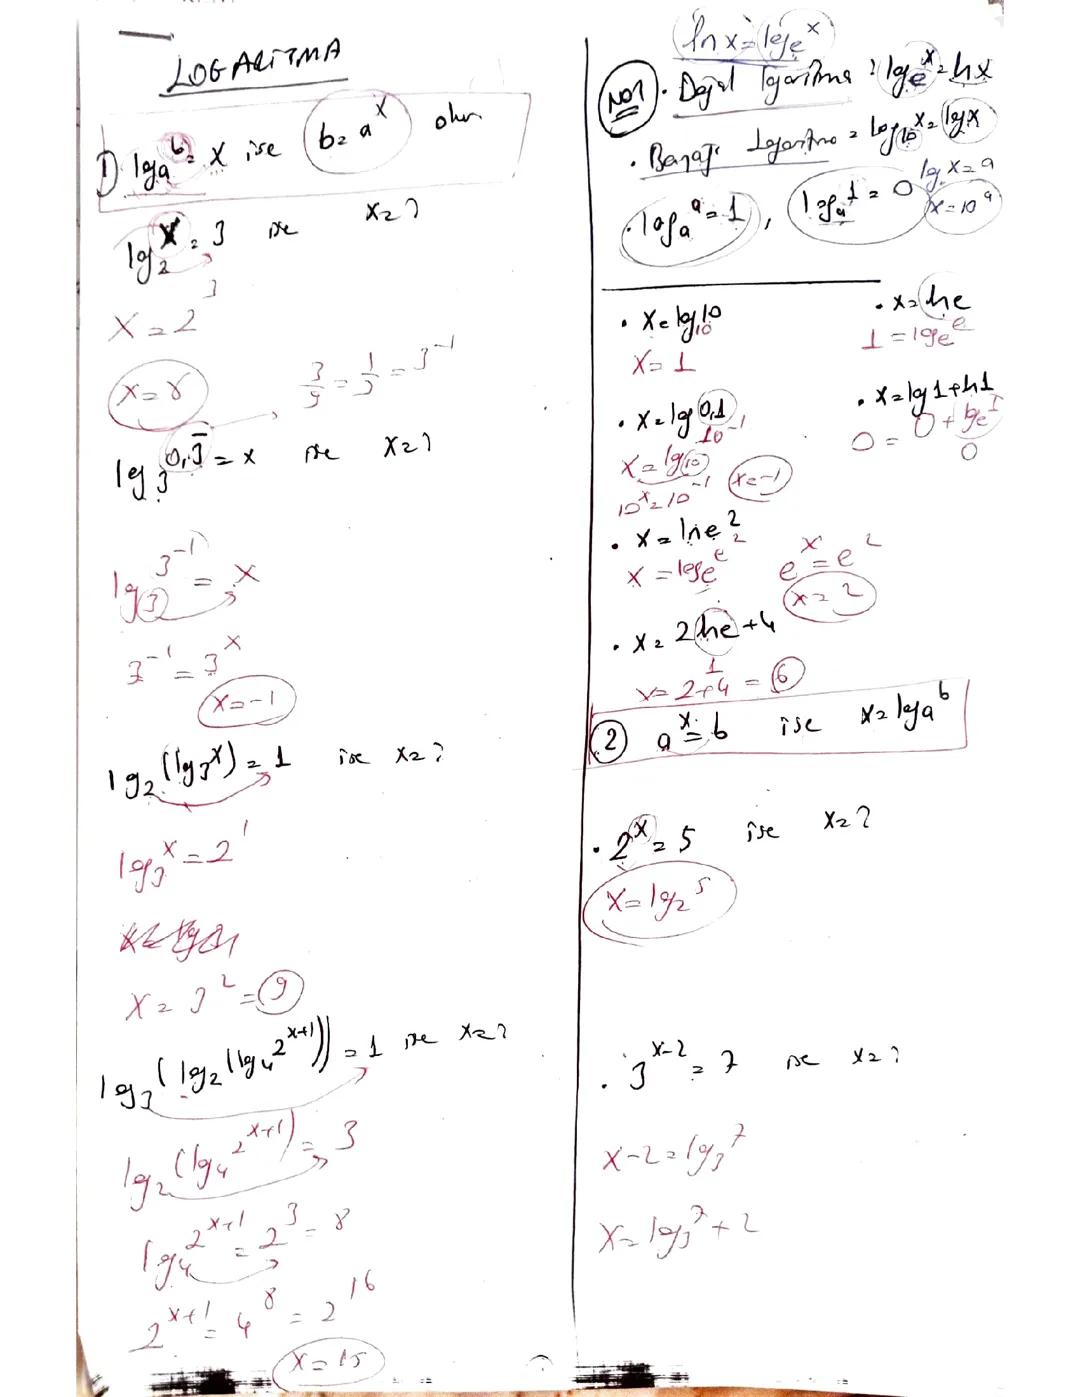 LOGARİTMA
1) logₐb = x ise b = aˣ olur
log₂x = 3 ise x = ?
x = 2³
x = 8
3/9 = 1/3 = 3⁻¹
log₃0,3̅ = x ise x = ?
log₃3⁻¹ = x
3⁻¹ = 3ˣ
x = -1
log₂(log₃x) = 1 ise x = ?
log₃x = 2¹
x = 3² = 9
log₃(log₂(log₄2ˣ⁺¹)) = 1 ise x = ?
log₂(log₄2ˣ⁺¹) = 3
log₄2ˣ⁺¹ = 2³ = 8
2ˣ⁺¹ = 4⁸ = 2¹⁶
x = 15
ln x = logₑx
NOT · Doğal logaritma : logₑx = ln x
· Bayağı Logaritma = log₁₀x = log x
log x = a
x = 10ᵃ
· logₐa = 1 , logₐ1 = 0
· x = log₁₀10
x = 1
· x = ln e
1 = logₑe
· x = log 0,1
10⁻¹
x = log₁₀
10ˣ = 10⁻¹
x = -1
· x = log 1 + ln 1
0 = 0 + logₑ1
0
· x = ln e²
x = logₑe²
eˣ = e²
x = 2
· x = 2 ln e + 4
1
x = 2 + 4 = 6
2 aˣ = b ise x = logₐb
· 2ˣ = 5 ise x = ?
x = log₂5
· 3ˣ⁻² = 7 ise x = ?
x - 2 = log₃7
x = log₃7 + 2